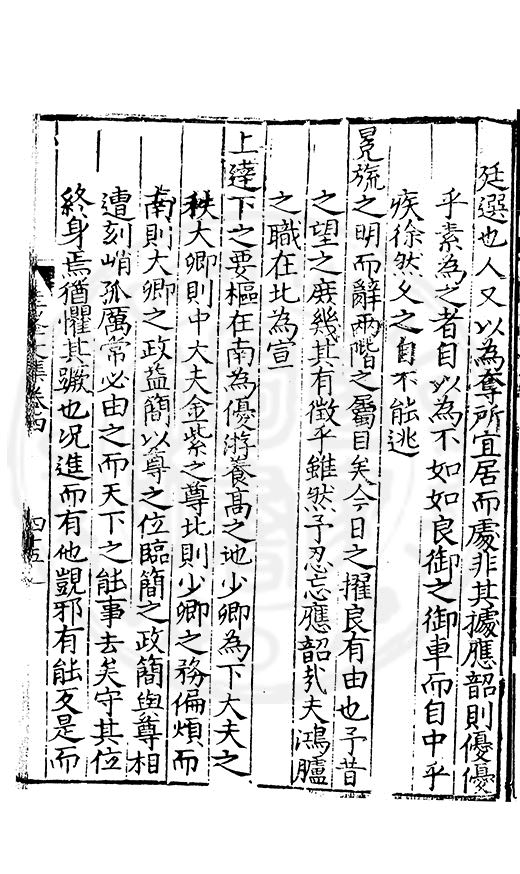 廷選也人又以為奪所宜居而處非其據應韶則優優
乎素為之者自以為不如如良御之御車而自中乎
疾徐然父之自不能逃
冕旒之明而辭兩階之屬目矣今日之擢良有由也予昔
之望之庶幾其有徵乎雖然予忍忘應韶哉夫鴻臚
之職在北為宣
上達下之要樞在南為優游養高之地少卿為下大夫之
秩大卿則中大夫金紫之尊北則少卿之務偏煩而
南則大卿之政益簡以尊之位臨簡之政簡與尊相
遭刻峭孤厲常必由之而天下之能事去矣守其位
終身焉猶懼其蹶也況進而有他覬邪有能反是而
文集卷四
四十五